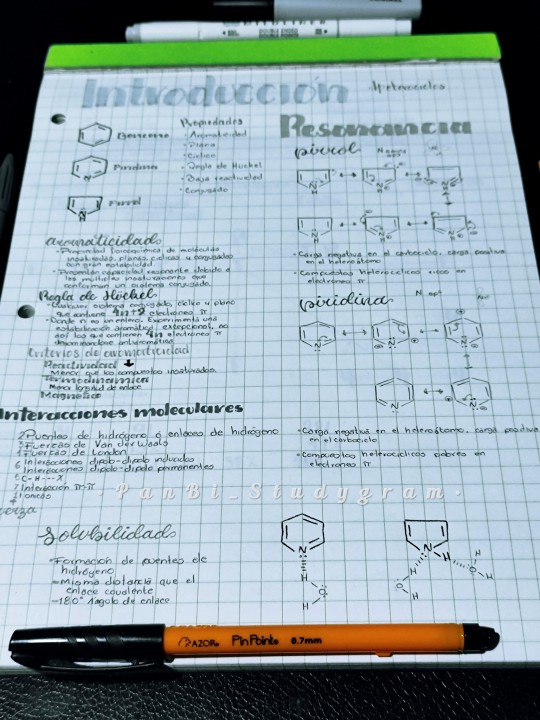 Introducción
Heterociclos
Benceno
Piridina
Pirrol
Propiedades
- Aromaticidad
- Plana
- Cíclica
- Regla de Huckel
- Baja reactividad
- Conjugado
Aromaticidad
insaturadas, planas, cíclicas y conjugadas
con gran estabilidad
- Presentan capacidad resonante debido a
las múltiples insaturaciones que
conforman un sistema conjugado.
Regla de Huckel
- Cualquier sistema conjugado, cíclico y plano
que contiene 4n+2 electrones π
Donde n es un entero. Experimenta una
estabilización aromática excepcional, no
así los que contienen 4n electrones π
denominándose antiaromático
Criterios de aromaticidad
Reactividad ↓
Menor que los compuestos insaturados.
Termodinámica
Menor longitud de enlace
Magnética
Interacciones moleculares
2 Puentes de hidrógeno ó enlaces de hidrógeno
3 Fuerzas de Van der Waals
Fuerzas de London
6 Interacciones dipolo-dipolo inducidos
Interacciones dipolo-dipolo permanentes
C-H---X
7 Interacción π-π
1 Iónicas
+
fuerza
Solubilidad
- Formación de puentes de
hidrógeno
- Misma distancia que el
enlace covalente
- 180° ángulo de enlace
Resonancia
pirrol
- Carga negativa en el carbociclo, carga positiva
en el heteroátomo
- Compuestos heterocíclicos ricos en
electrones π
piridina
- Carga negativa en el heteroátomo, carga positiva
en el carbociclo
- Compuestos heterocíclicos pobres en
electrones π
· PanBi_Studygram ·
AZOR® PinPoint® 0.7mm